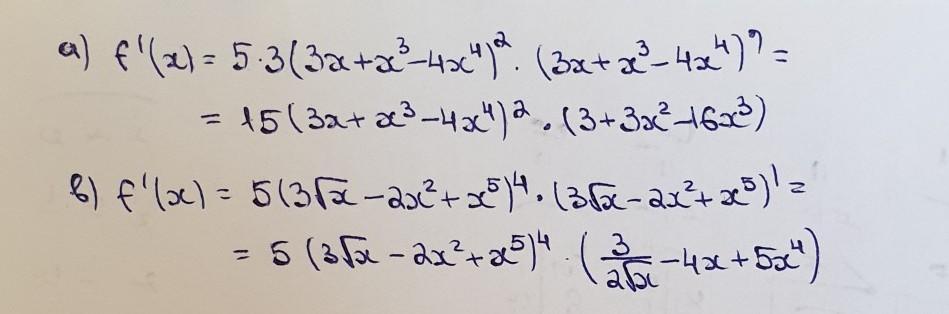 a) f'(x) = 5·3(3x+x³-4x⁴)²·(3x+x³-4x⁴)' =
= 15(3x+x³-4x⁴)²·(3+3x²-16x³)
в) f'(x) = 5(3√x-2x²+x⁵)⁴·(3√x-2x²+x⁵)' =
= 5(3√x-2x²+x⁵)⁴·(3/(2√x)-4x+5x⁴)